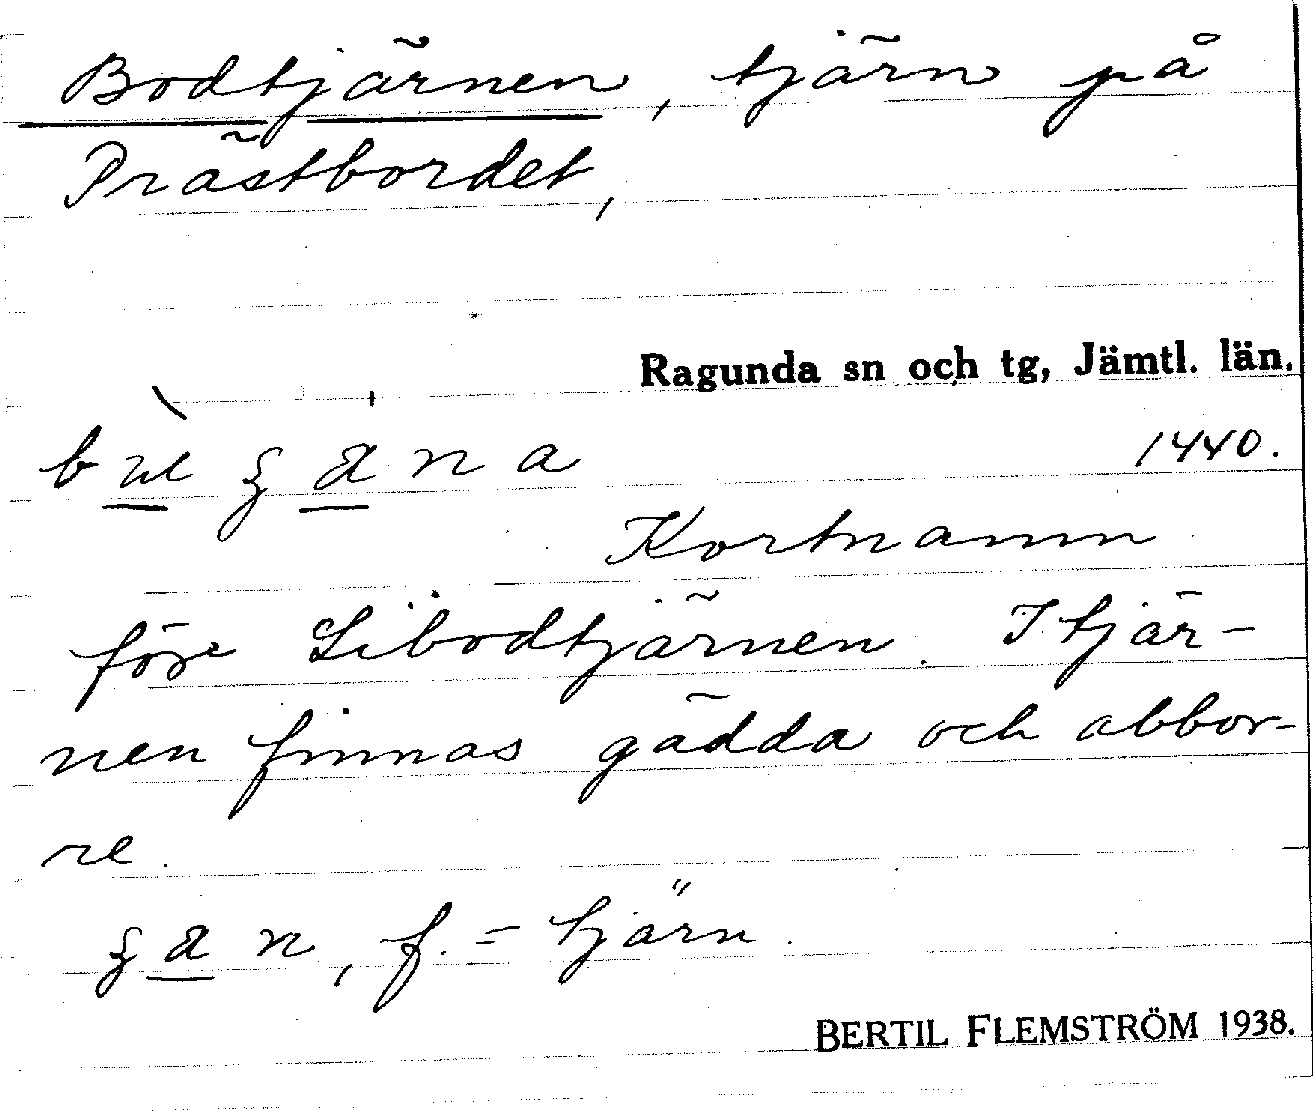 Bodtjärnen, tjärn på
Prästbordet,
Ragunda sn och tg, Jämtl. län.
1440.
Kortnamn
före Libodtjärnen. I tjär-
nen finnas gädda och abbor-
re.
, f. = tjärn.
BERTIL FLEMSTRÖM 1938.